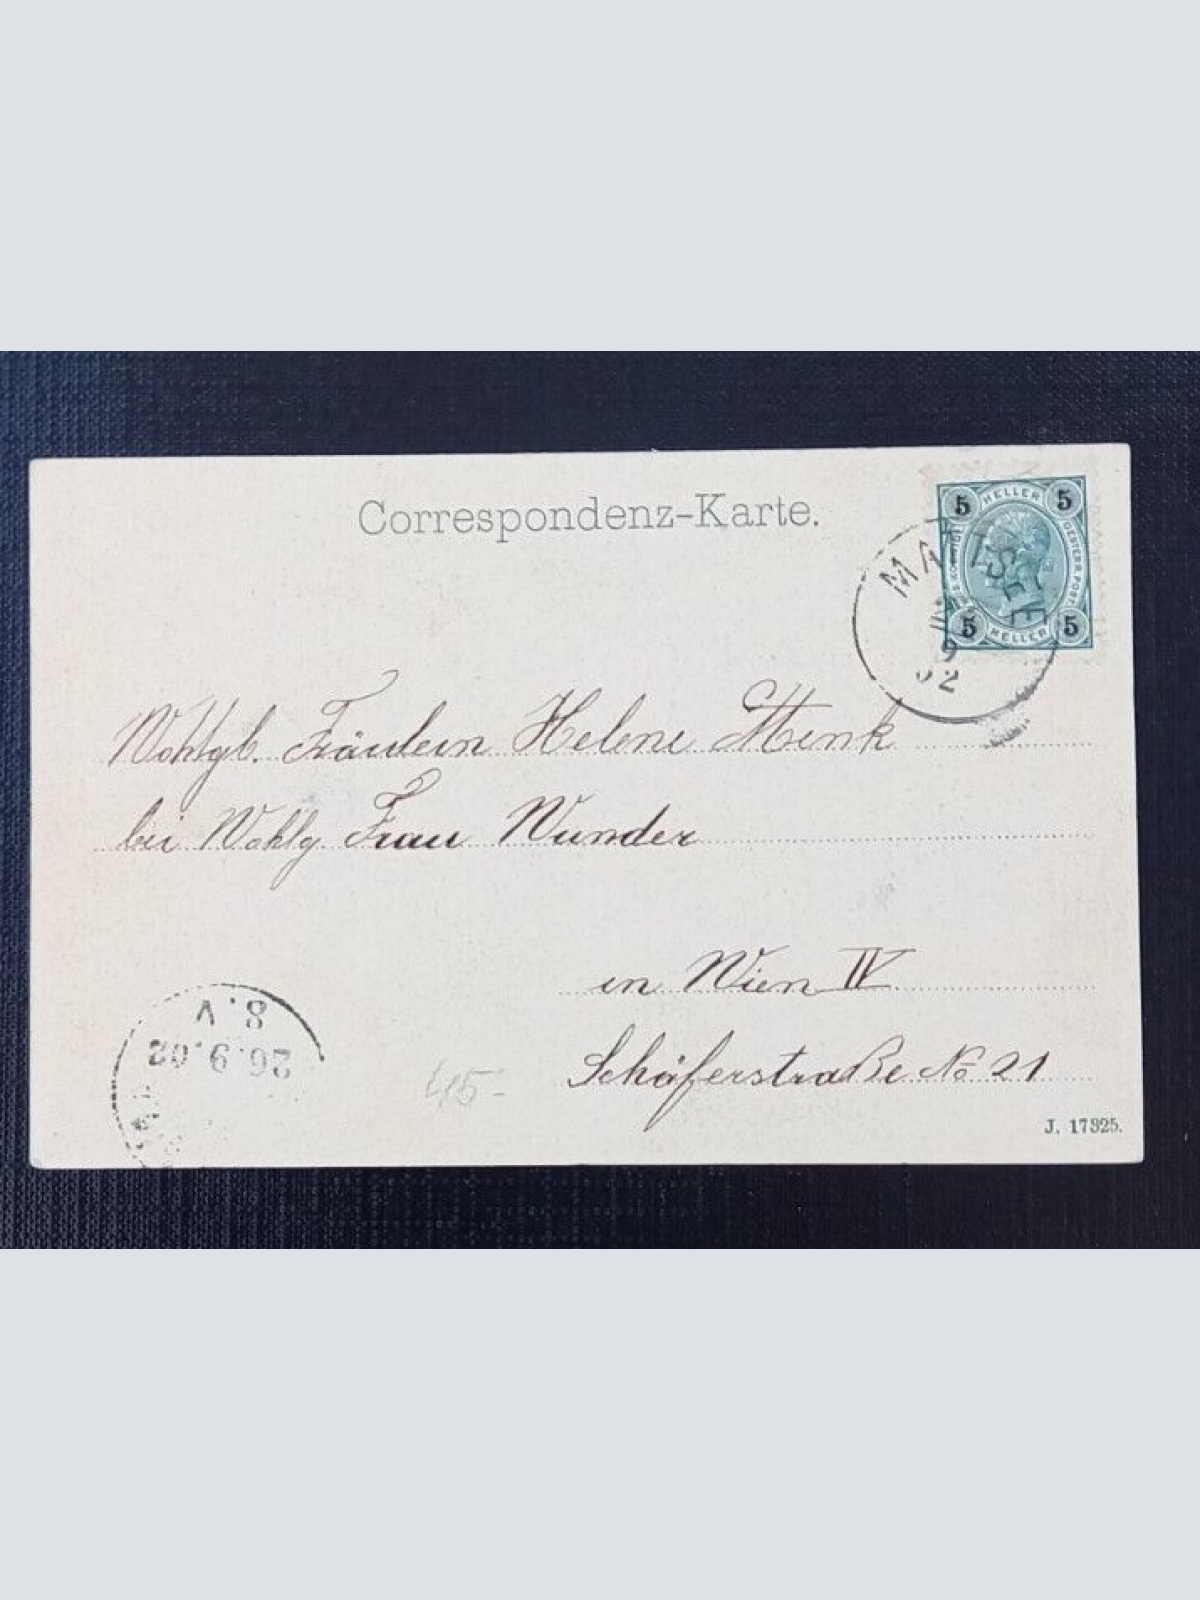 Correspondenz-Karte.
5 HELLER 5
OESTERR. POST.
5 HELLER 5
MATTSEE
9
02
Wohlgb. Fräulein Helene Menk
bei Wohlg. Frau Wunder
in Wien IV
Schäferstraße No 21
8.V
26.9.02
45-
J. 17325.